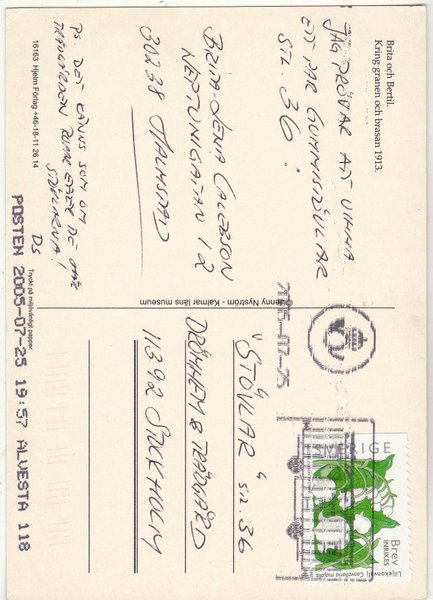 Brita och Bertil.
Kring granen och brasan 1913.
JAG PRÖVAR ATT VINNA
ETT PAR GUMMISTÖVLAR
STL. 36!
BRITA-LENA CARLSSON
NEPTUNIGATAN 12
30238 HALMSTAD
PS. DET KÄNNS SOM OM
TRÄDGÅRDEN ROPAR EFTER DE DÄR
STÖVLARNA!
DS
16163 Hjelm Förlag +46-18-11 26 14
Tryckt på miljövänligt papper.
POSTEN 2005-07-25 19:57 ALVESTA 118
Jenny Nyström - Kalmar läns museum
"STÖVLAR" STL. 36
DRÖMHEM & TRÄDGÅRD
11392 STOCKHOLM
SVERIGE
Brev
INRIKES
Liljekonvalj Convallaria majalis